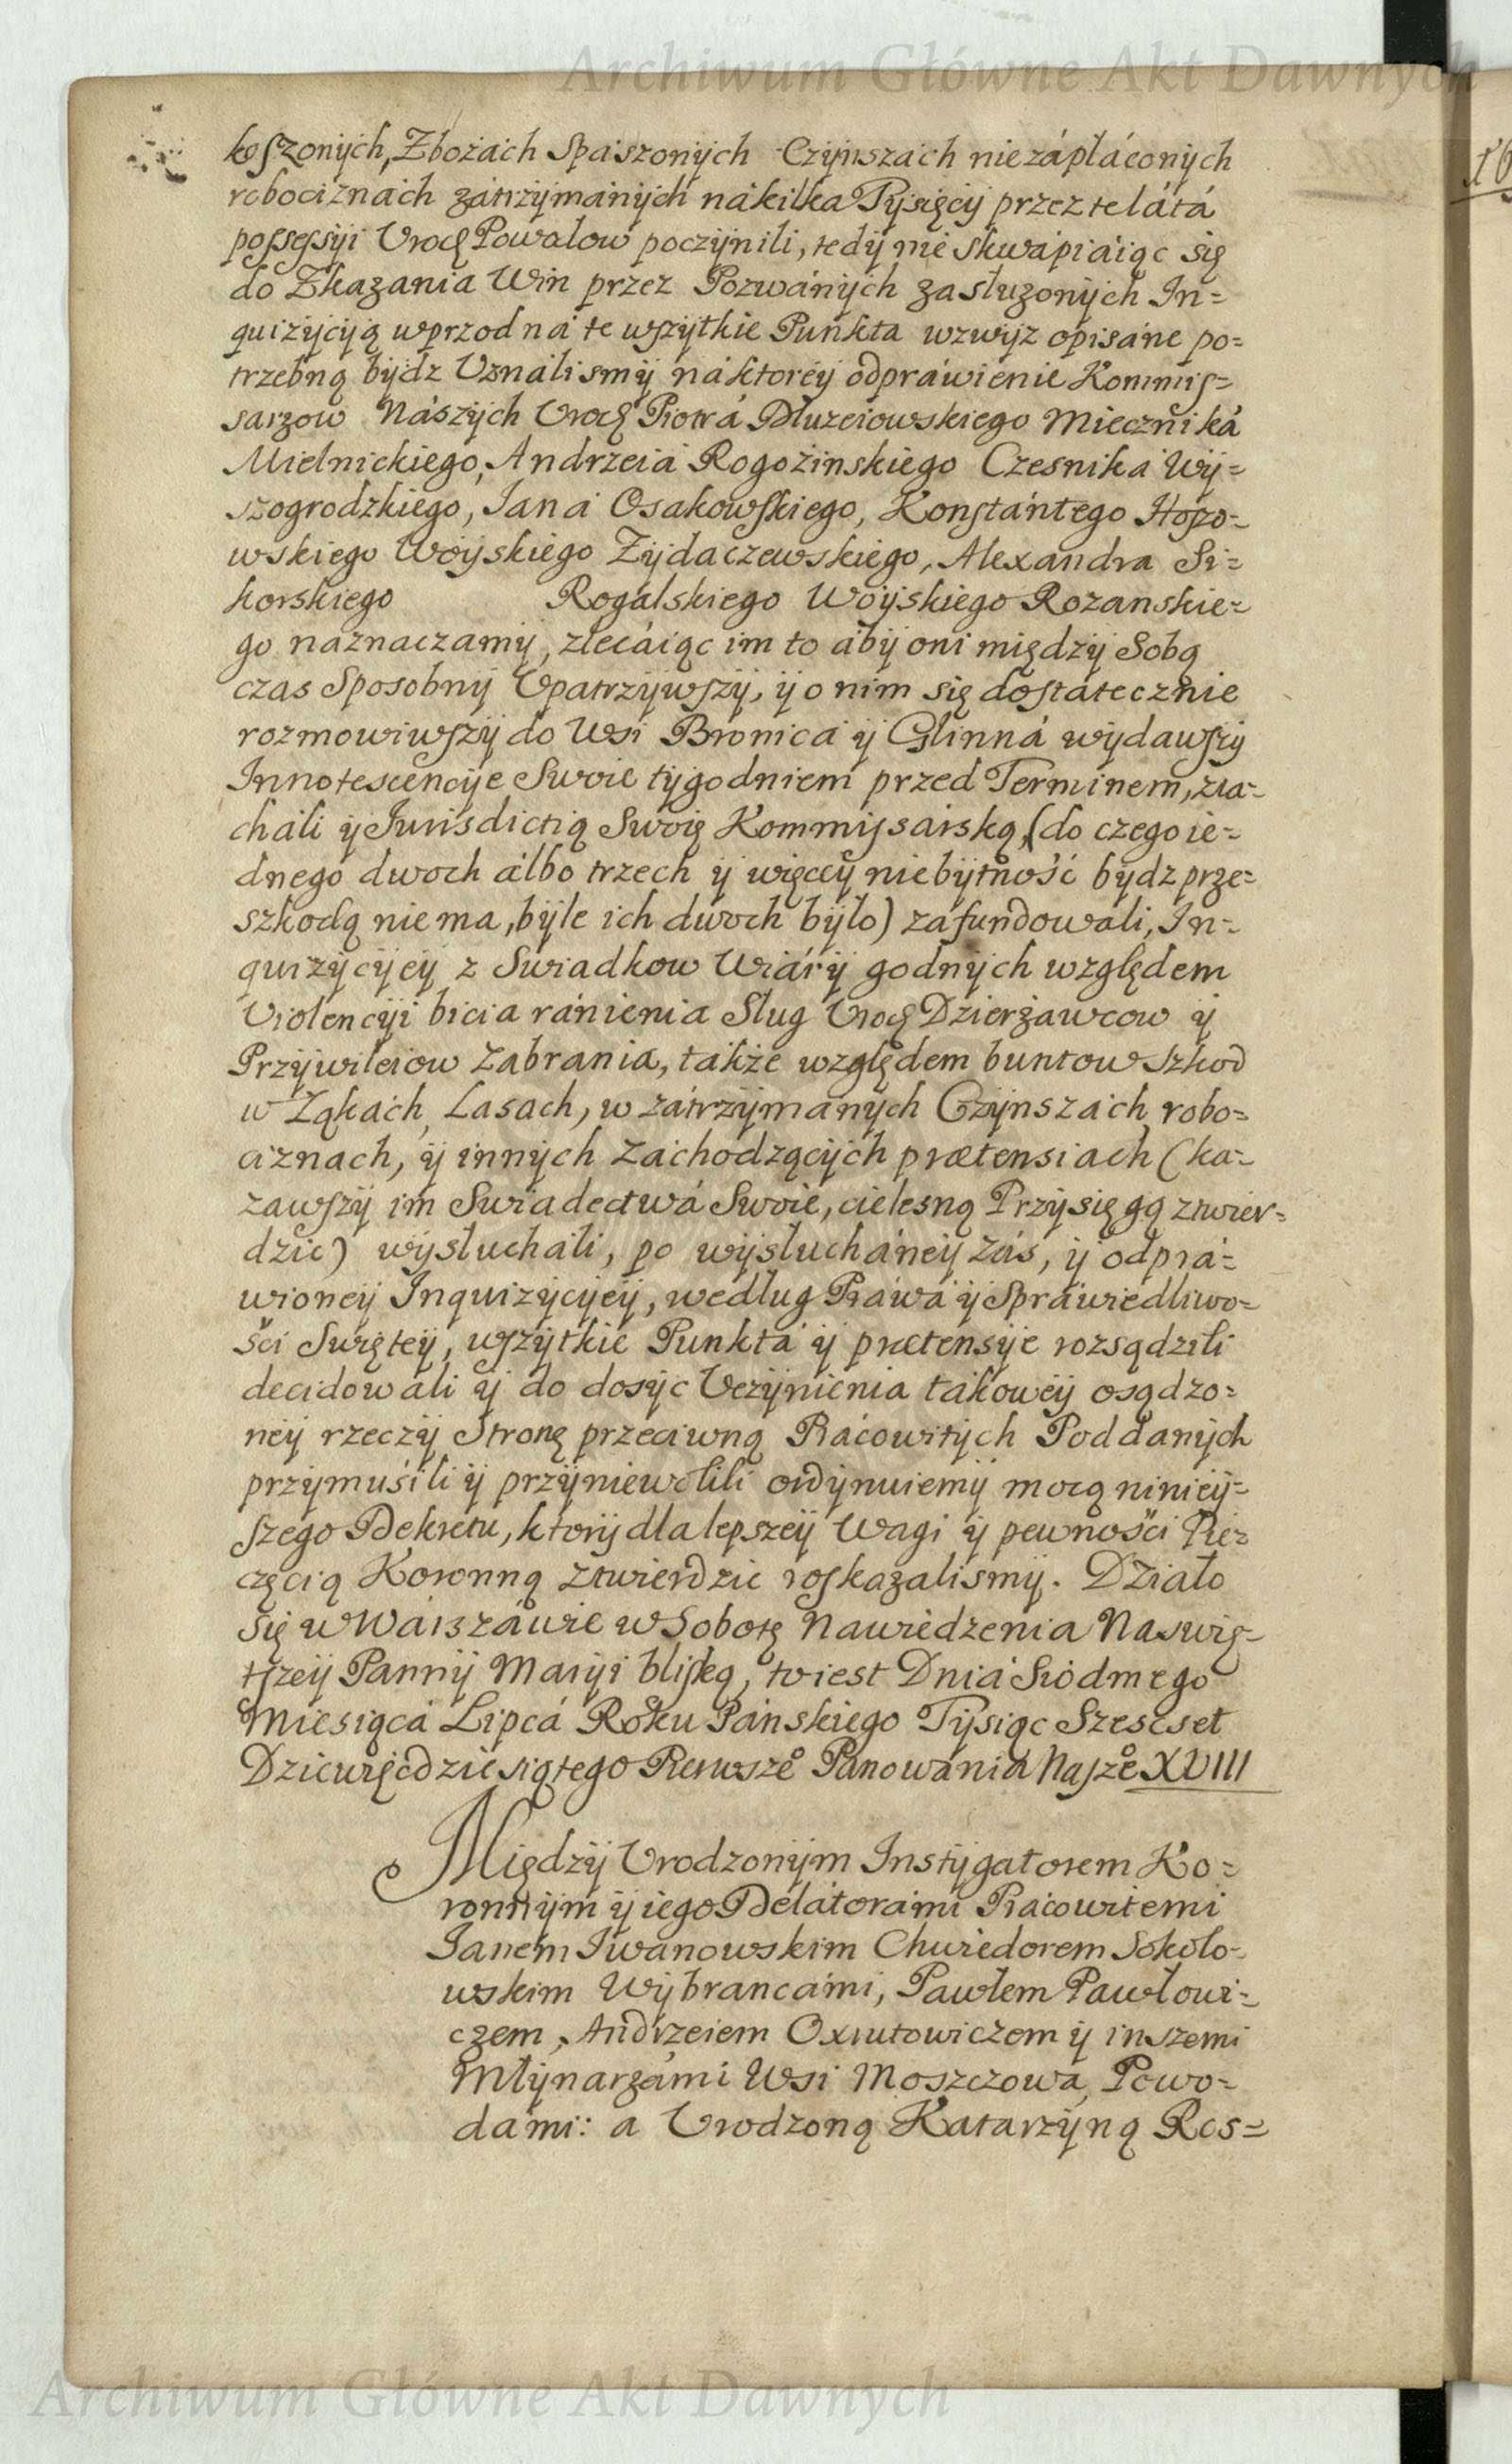 Archiwum Główne Akt Dawnych
koſzonych, Zbożách Spaszonych Czynszách niezápłáconych
robociznách zátrzymánych nákilka Tysięcy przez te látá
poſseſsyi Uroȩ Powałow poczynili, tedy nie skwápiáiąc się
do Zkazania Win przez Pozwánych zasłuzonych In=
quizycyą wprzod ná te wſzytkie Punkta wzwyz opisáne po=
trzebną bydz Uználismy náktorey odpráwienie Kommiſ=
sarzow Nászych Uroȩ Piotrá Dłuzeiowskiego Mieczniká
Mielnickiego, Andrzeiá Rogożinskiego Czesnika Wy=
szogrodzkiego, Janá Osakowſkiego, Konſtántego Hozo=
wskiego Woyskiego Zydaczewskiego, Alexandra Si=
korskiego Rogálskiego Woyskiego Rozanskie=
go náznaczamy, zlecáiąc im to áby oni między Sobą
czas Sposobny Upatrzywſzy, y o nim się doſtátecznie
rozmowiwſzy do Wsi Bronicá y Glinná wydawſzy
Innotescencye Swoie tygodniem przed Terminem, zia=
cháli y Jurisdictią Swoię Kommiſsárską, (do czego ie=
dnego dwoch álbo trzech y więcey niebytność bydz prze=
szkodą nie ma, byle ich dwoch było) záfundowali, In=
quizycyey z Swiadkow Wiáry godnych względem
Violencyi bicia ránienia Sług Uroȩ Dzierżawcow y
Przywileiow Zabrania, także względem buntow szkod
w Łąkách, Lasach, w zátrzymánych Czynszách, robo=
ciznach, y innych Zachodzących prætensiach (ka=
zawſzy im Swiadectwá Swoie, cielesną Przysięgą ztwier=
dzić) wysłucháli, po wysłucháney zás, y odprá=
wioney Inquizycyey, według Práwá y Spráwiedliwo=
ści Swiętey, wſzytkie Punktá y prætensye rozsądzili
decidowáli y do dosyc Uczynienia tákowey osądzo=
ney rzeczy Stronę przeciwną Prácowitych Poddanych
przymuśili y przyniewolili ordynuiemy mocą niniey=
ſzego Dekretu, ktory dla lepszey Wagi y pewności Pie=
częcią Koronną ztwierdzic roſkazalismy. Dziáło
się w Wárszáwie w Sobotę Nawiedzenia Naswię=
tſzey Panny Maryi bliſką, to iest Dniá Siodmego
Miesiącá Lipcá Roku Pánskiego Tysiąc Szescset
Dziewięcdziesiątego Pierwszeo Panowánia Naſzeo XVIII
Między Urodzonym Instygatorem Ko=
ronnym y iego Delátorámi Prácowitemi
Janem Iwanowskim Chwiedorem Sokoło=
wskim Wybrancámi, Páwłem Pawłowi=
czem, Andrzeiem Oxiutowiczem y inszemi
Młynarzámi Wsi Moszczowa, Powo=
dami: a Urodzoną Katarzyną Ros=
Archiwum Główne Akt Dawnych